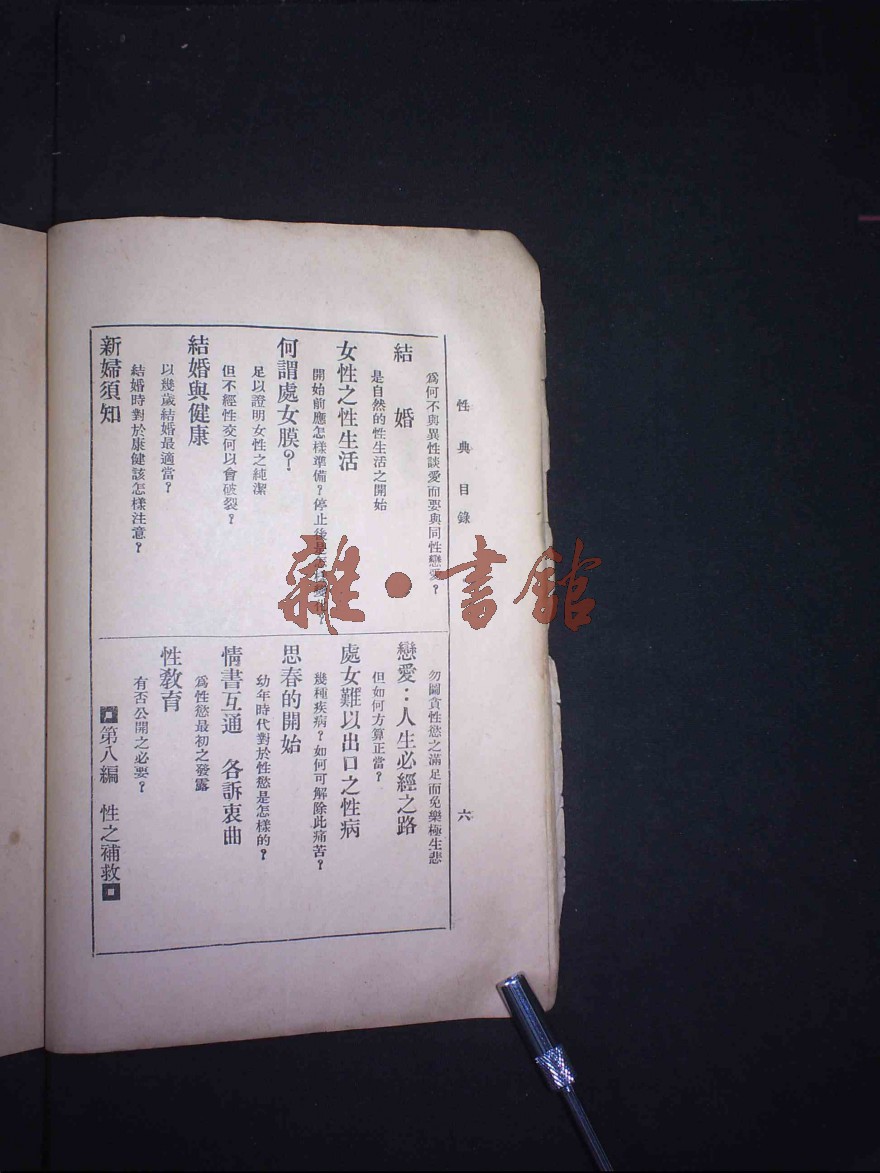 性典目錄
六
爲何不與異性談愛而要與同性戀愛？
結婚
是自然的性生活之開始
女性之性生活
開始前應怎樣準備？停止後是怎樣
何謂處女膜？
足以證明女性之純潔
但不經性交何以會破裂？
結婚與健康
以幾歲結婚最適當？
結婚時對於康健該怎樣注意？
新婦須知
勿圖貪性慾之滿足而免樂極生悲
戀愛：人生必經之路
但如何方算正當？
處女難以出口之性病
幾種疾病？如何可解除此痛苦？
思春的開始
幼年時代對於性慾是怎樣的？
情書互通 各訴衷曲
爲性慾最初之發露
性教育
有否公開之必要？
第八編 性之補救
雜·書館